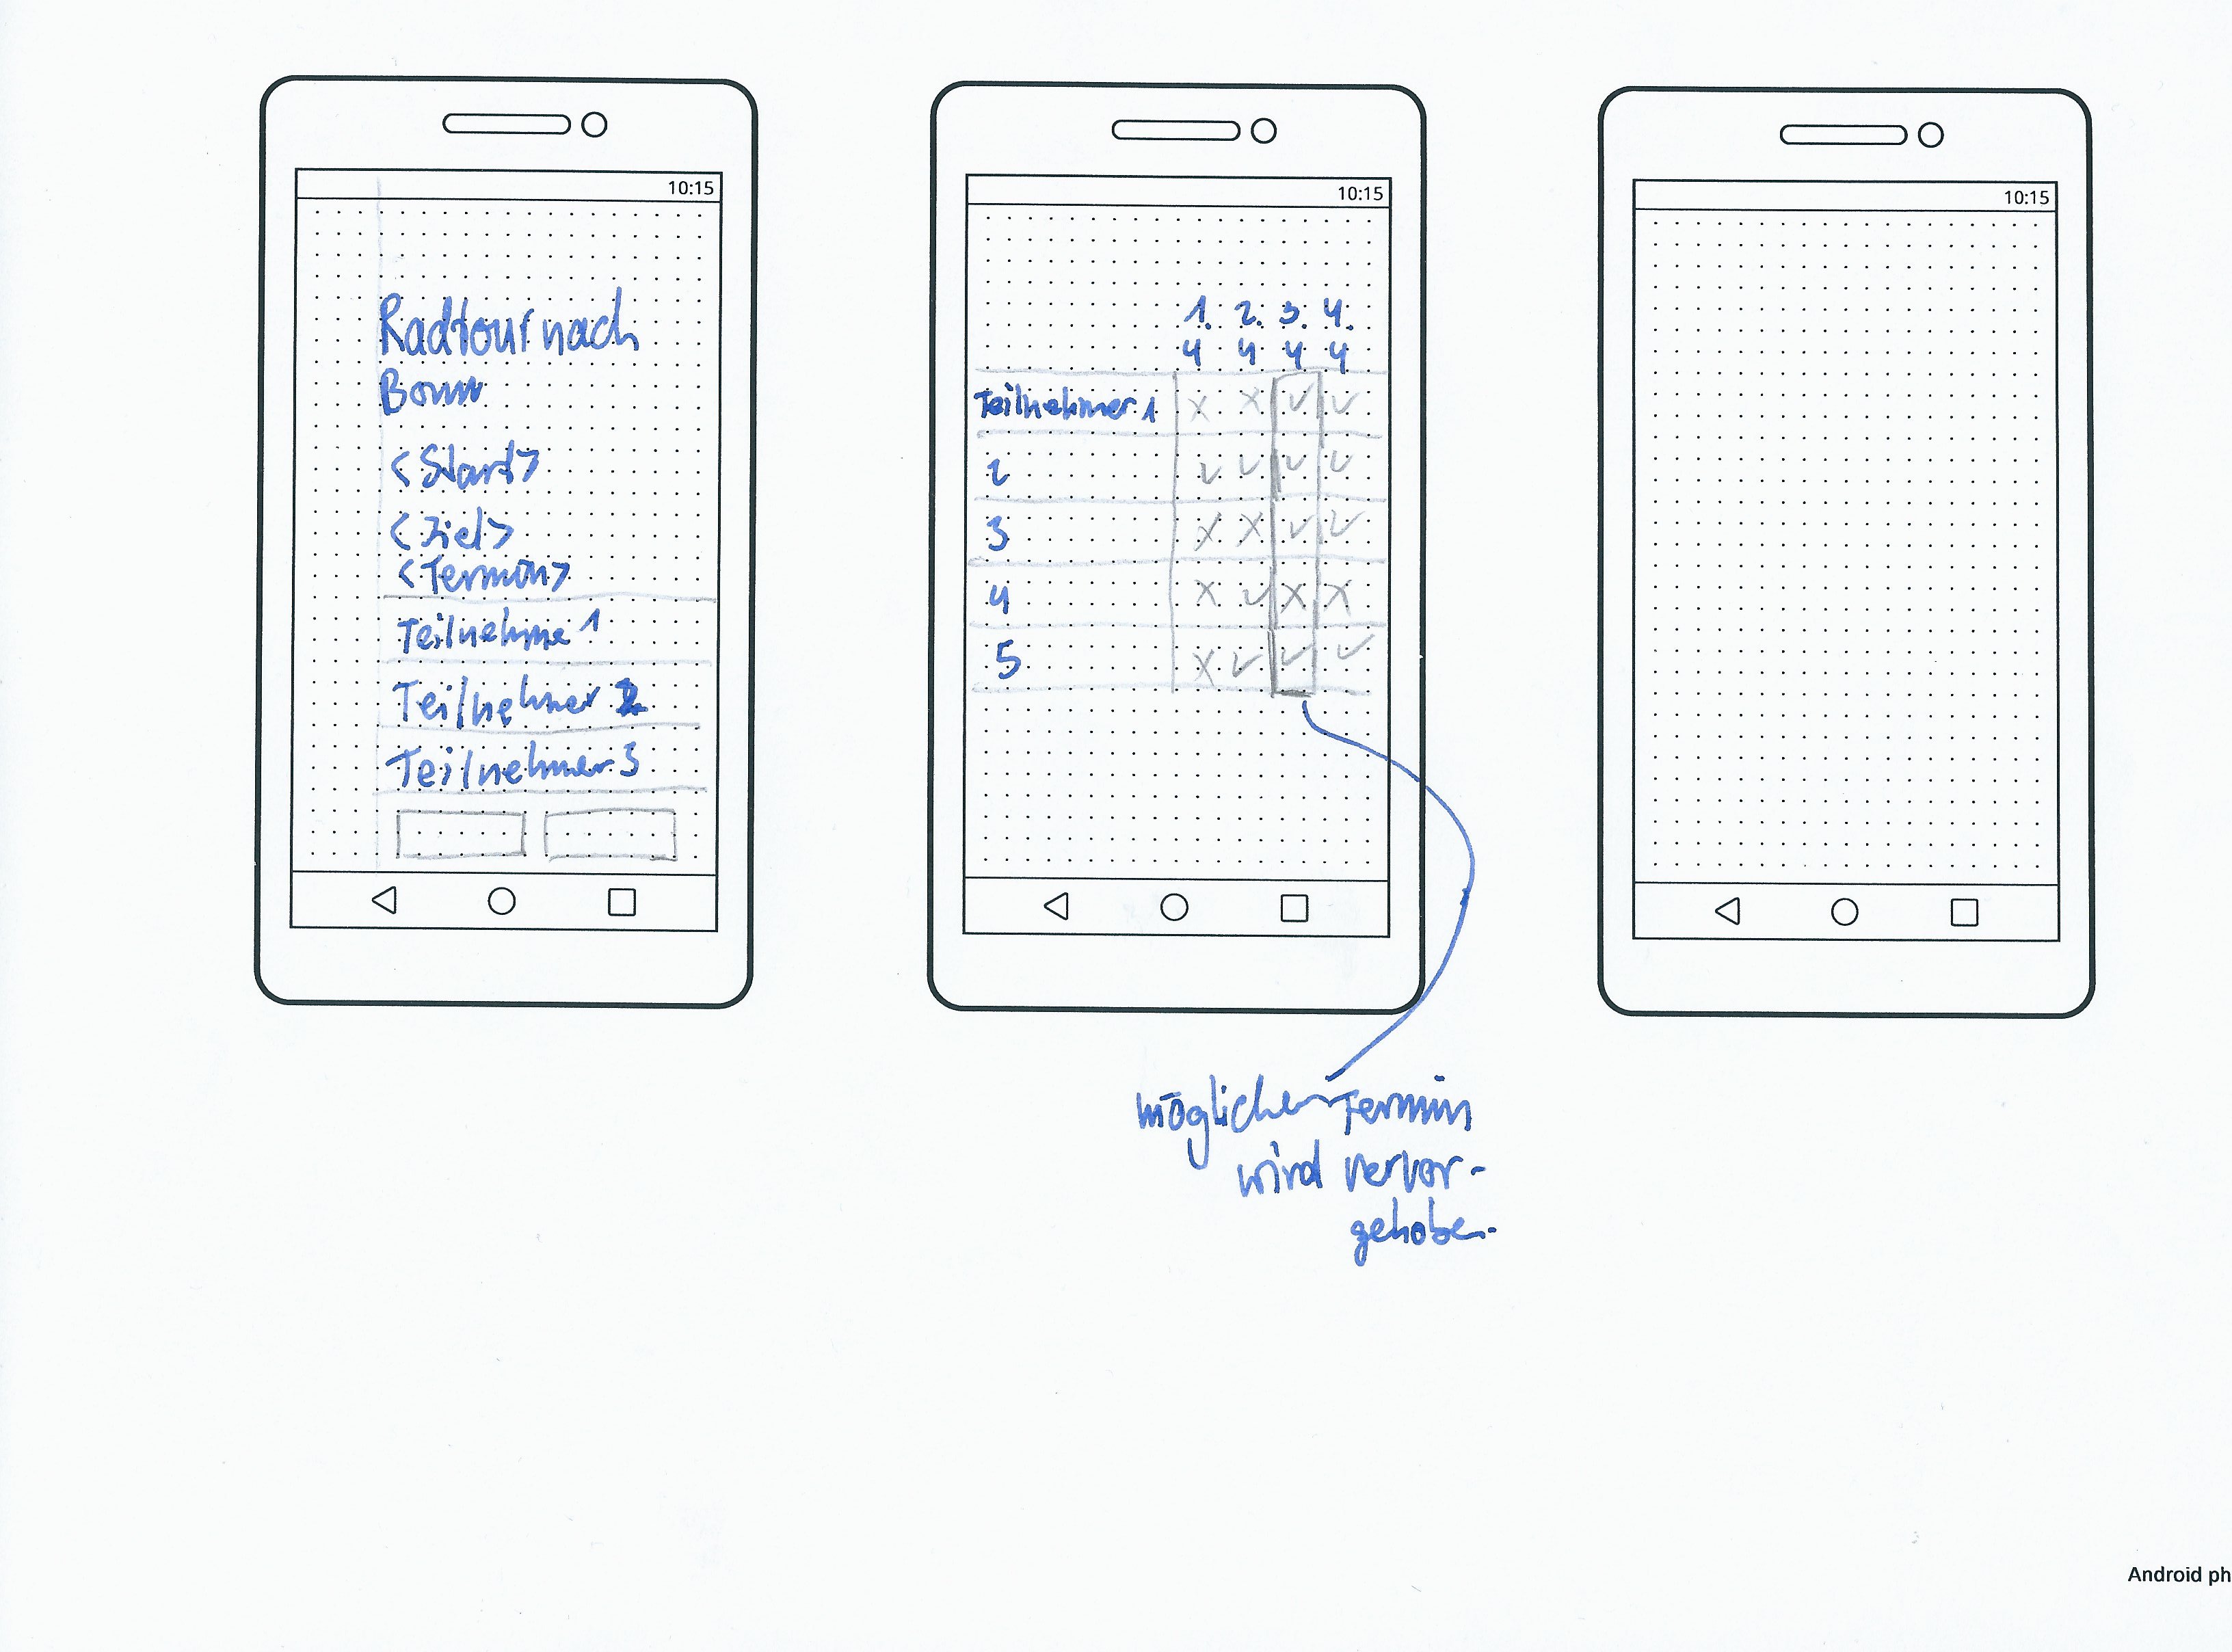 10:15
Radtour nach
Bonn
<Start>
<Ziel>
<Termin>
Teilnehme 1
Teilnehmer 2
Teilnehmer 3
10:15
1. 2. 3. 4.
4 4 4 4
Teilnehmer 1 x x ✓ ✓
2 ✓ ✓ ✓ ✓
3 x x ✓ ✓
4 x ✓ x x
5 x ✓ ✓ ✓
möglicher Termin
wird vervor-
gehoben
10:15
Android ph